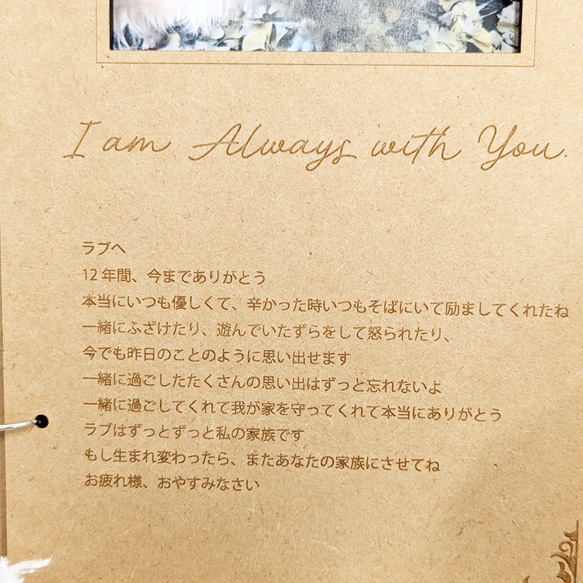 I am Always with You.
ラブへ
12年間、今までありがとう
本当にいつも優しくて、辛かった時いつもそばにいて励ましてくれたね
一緒にふざけたり、遊んでいたずらをして怒られたり、
今でも昨日のことのように思い出せます
一緒に過ごしたたくさんの思い出はずっと忘れないよ
一緒に過ごしてくれて我が家を守ってくれて本当にありがとう
ラブはずっとずっと私の家族です
もし生まれ変わったら、またあなたの家族にさせてね
お疲れ様、おやすみなさい